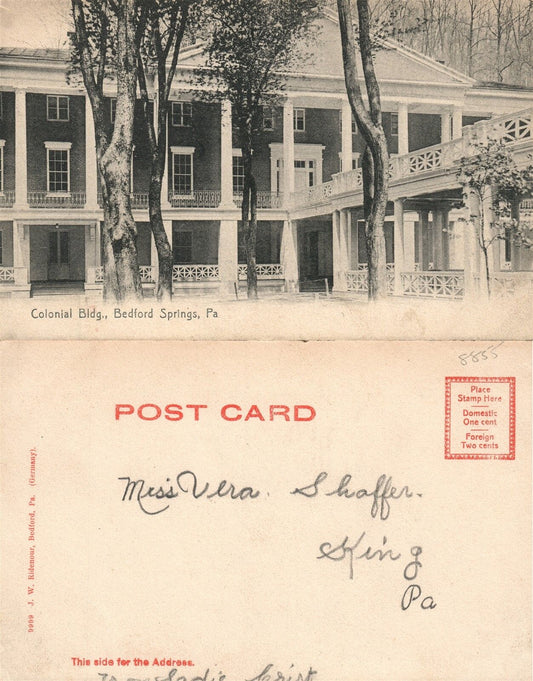 Colonial Bldg., Bedford Springs, Pa
8855
POST CARD
Place
Stamp Here
Domestic
One cent
Foreign
Two cents
Miss Vera. Shaffer.
King
Pa
9999 J. W. Ridenour, Bedford, Pa. (Germany).
This side for the Address.